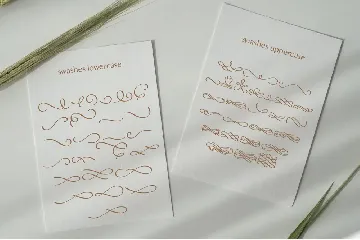 swashes lowercase
swashes uppercase